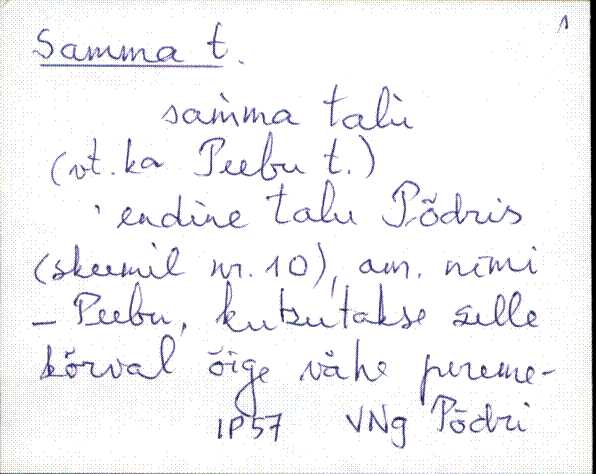 1
Samma t.
sam̀ma talù
(vt. ka Peebu t.)
endine talu Põdris
(skeemil nr. 10), am. nimi
– Peebu, kutsutakse selle
kõrval õige vähe pereme-
IP57 VNg Põdri